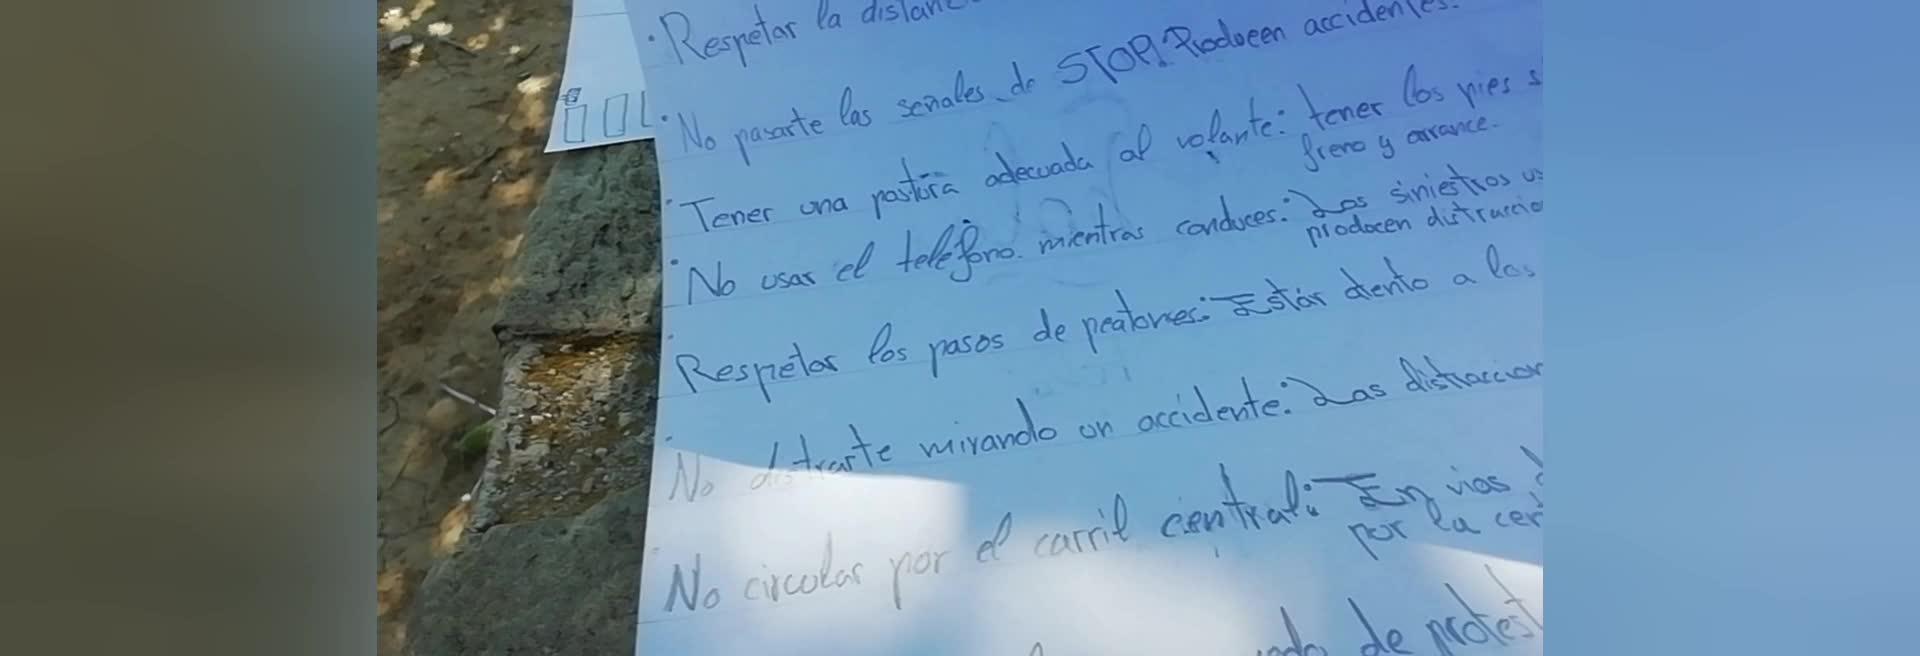 · Respetar la
· No pasarte las señales de STOP! Producen accidentes.
· Tener una postura adecuada al volante: tener los pies
freno y arrance.
· No usar el teléfono mientras conduces: Los siniestros
producen
· Respetar los pasos de peatones: Estár atento a los
· No distrarte mirando un accidente: Las
No circular por el carril central: En vias
por la
de